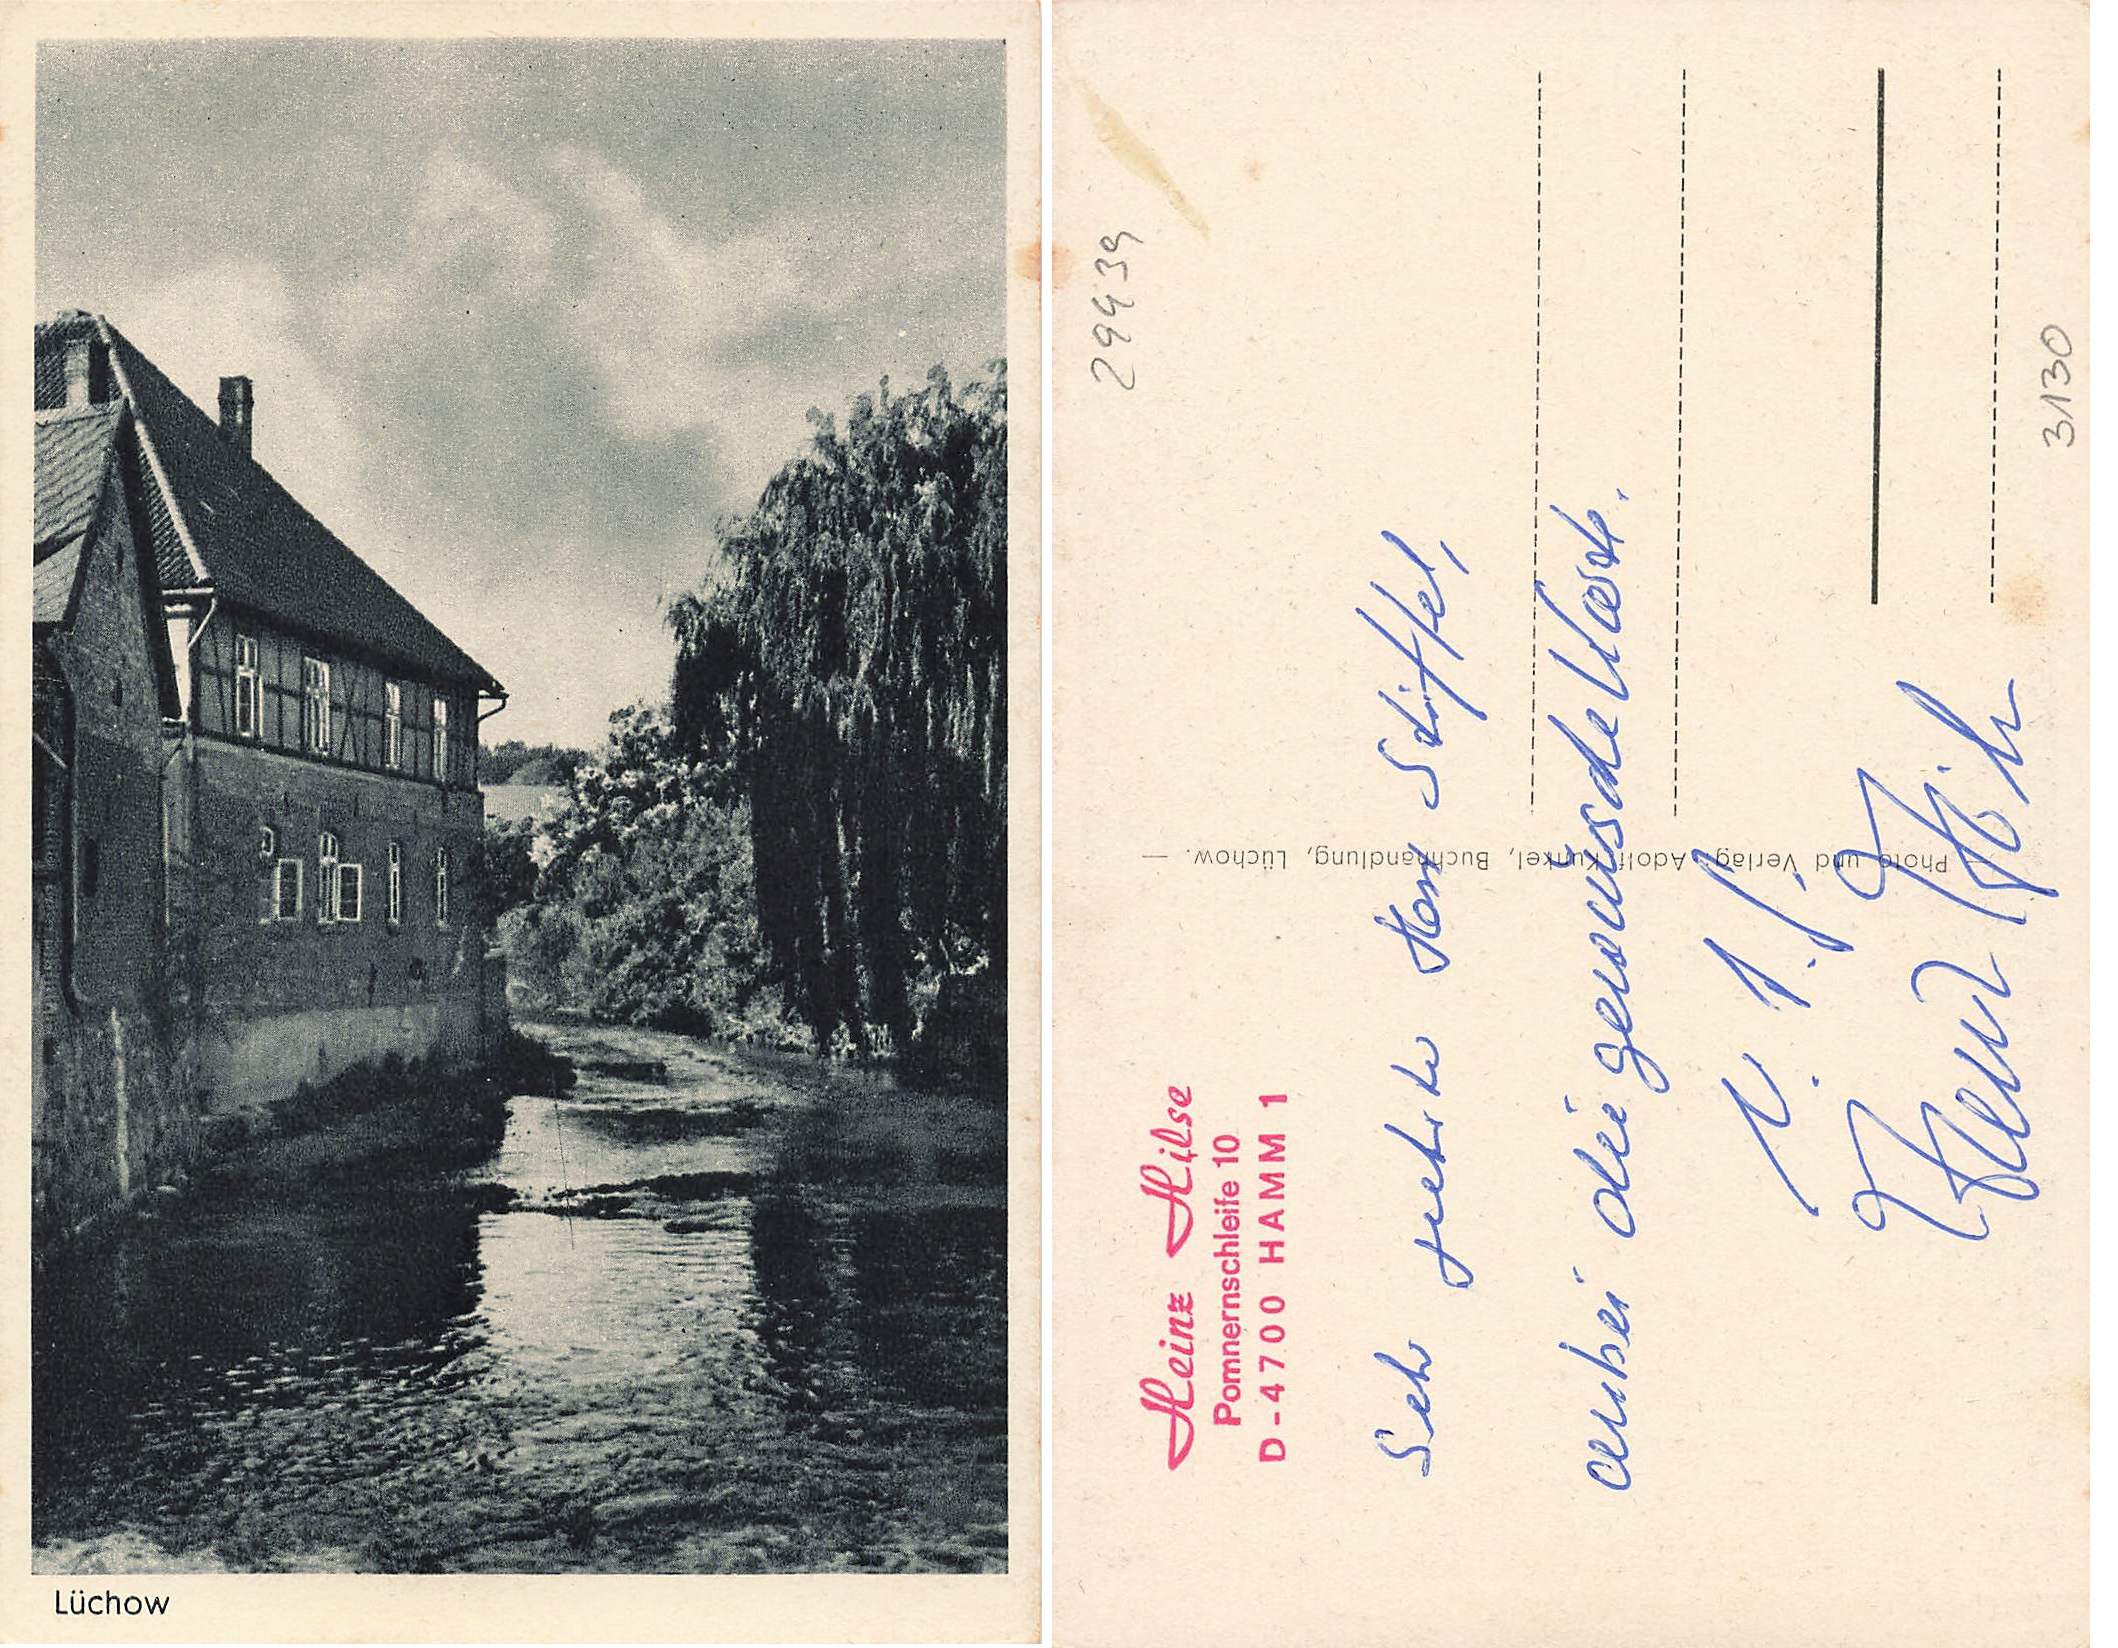 Lüchow
29439
Heinz Hilse
Pommernschleife 10
D-4700 HAMM 1
Sehr geehrter Herr Stiffel,
anbei die gewünschte Karte.
Photo und Verlag: Adolf Kunkel, Buchhandlung, Lüchow.
Heinz Hilse
3130